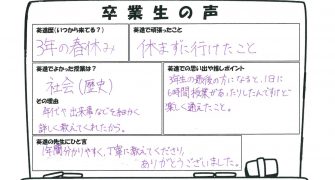 卒業生の声
英進歴(いつから来てる?)
3年の春休み
英進で頑張ったこと
休まずに行けたこと
英進でよかった授業は?
社会(歴史)
その理由
年代や出来事などを細かく
詳しく教えてくれたから。
英進での思い出や推しポイント
3年生の最後の方になると、1日に
6時間授業があったりしたんですけど
楽しく通えたこと。
英進の先生にひと言
1年間分かりやすく、丁寧に教えてくださり、
ありがとうございました。